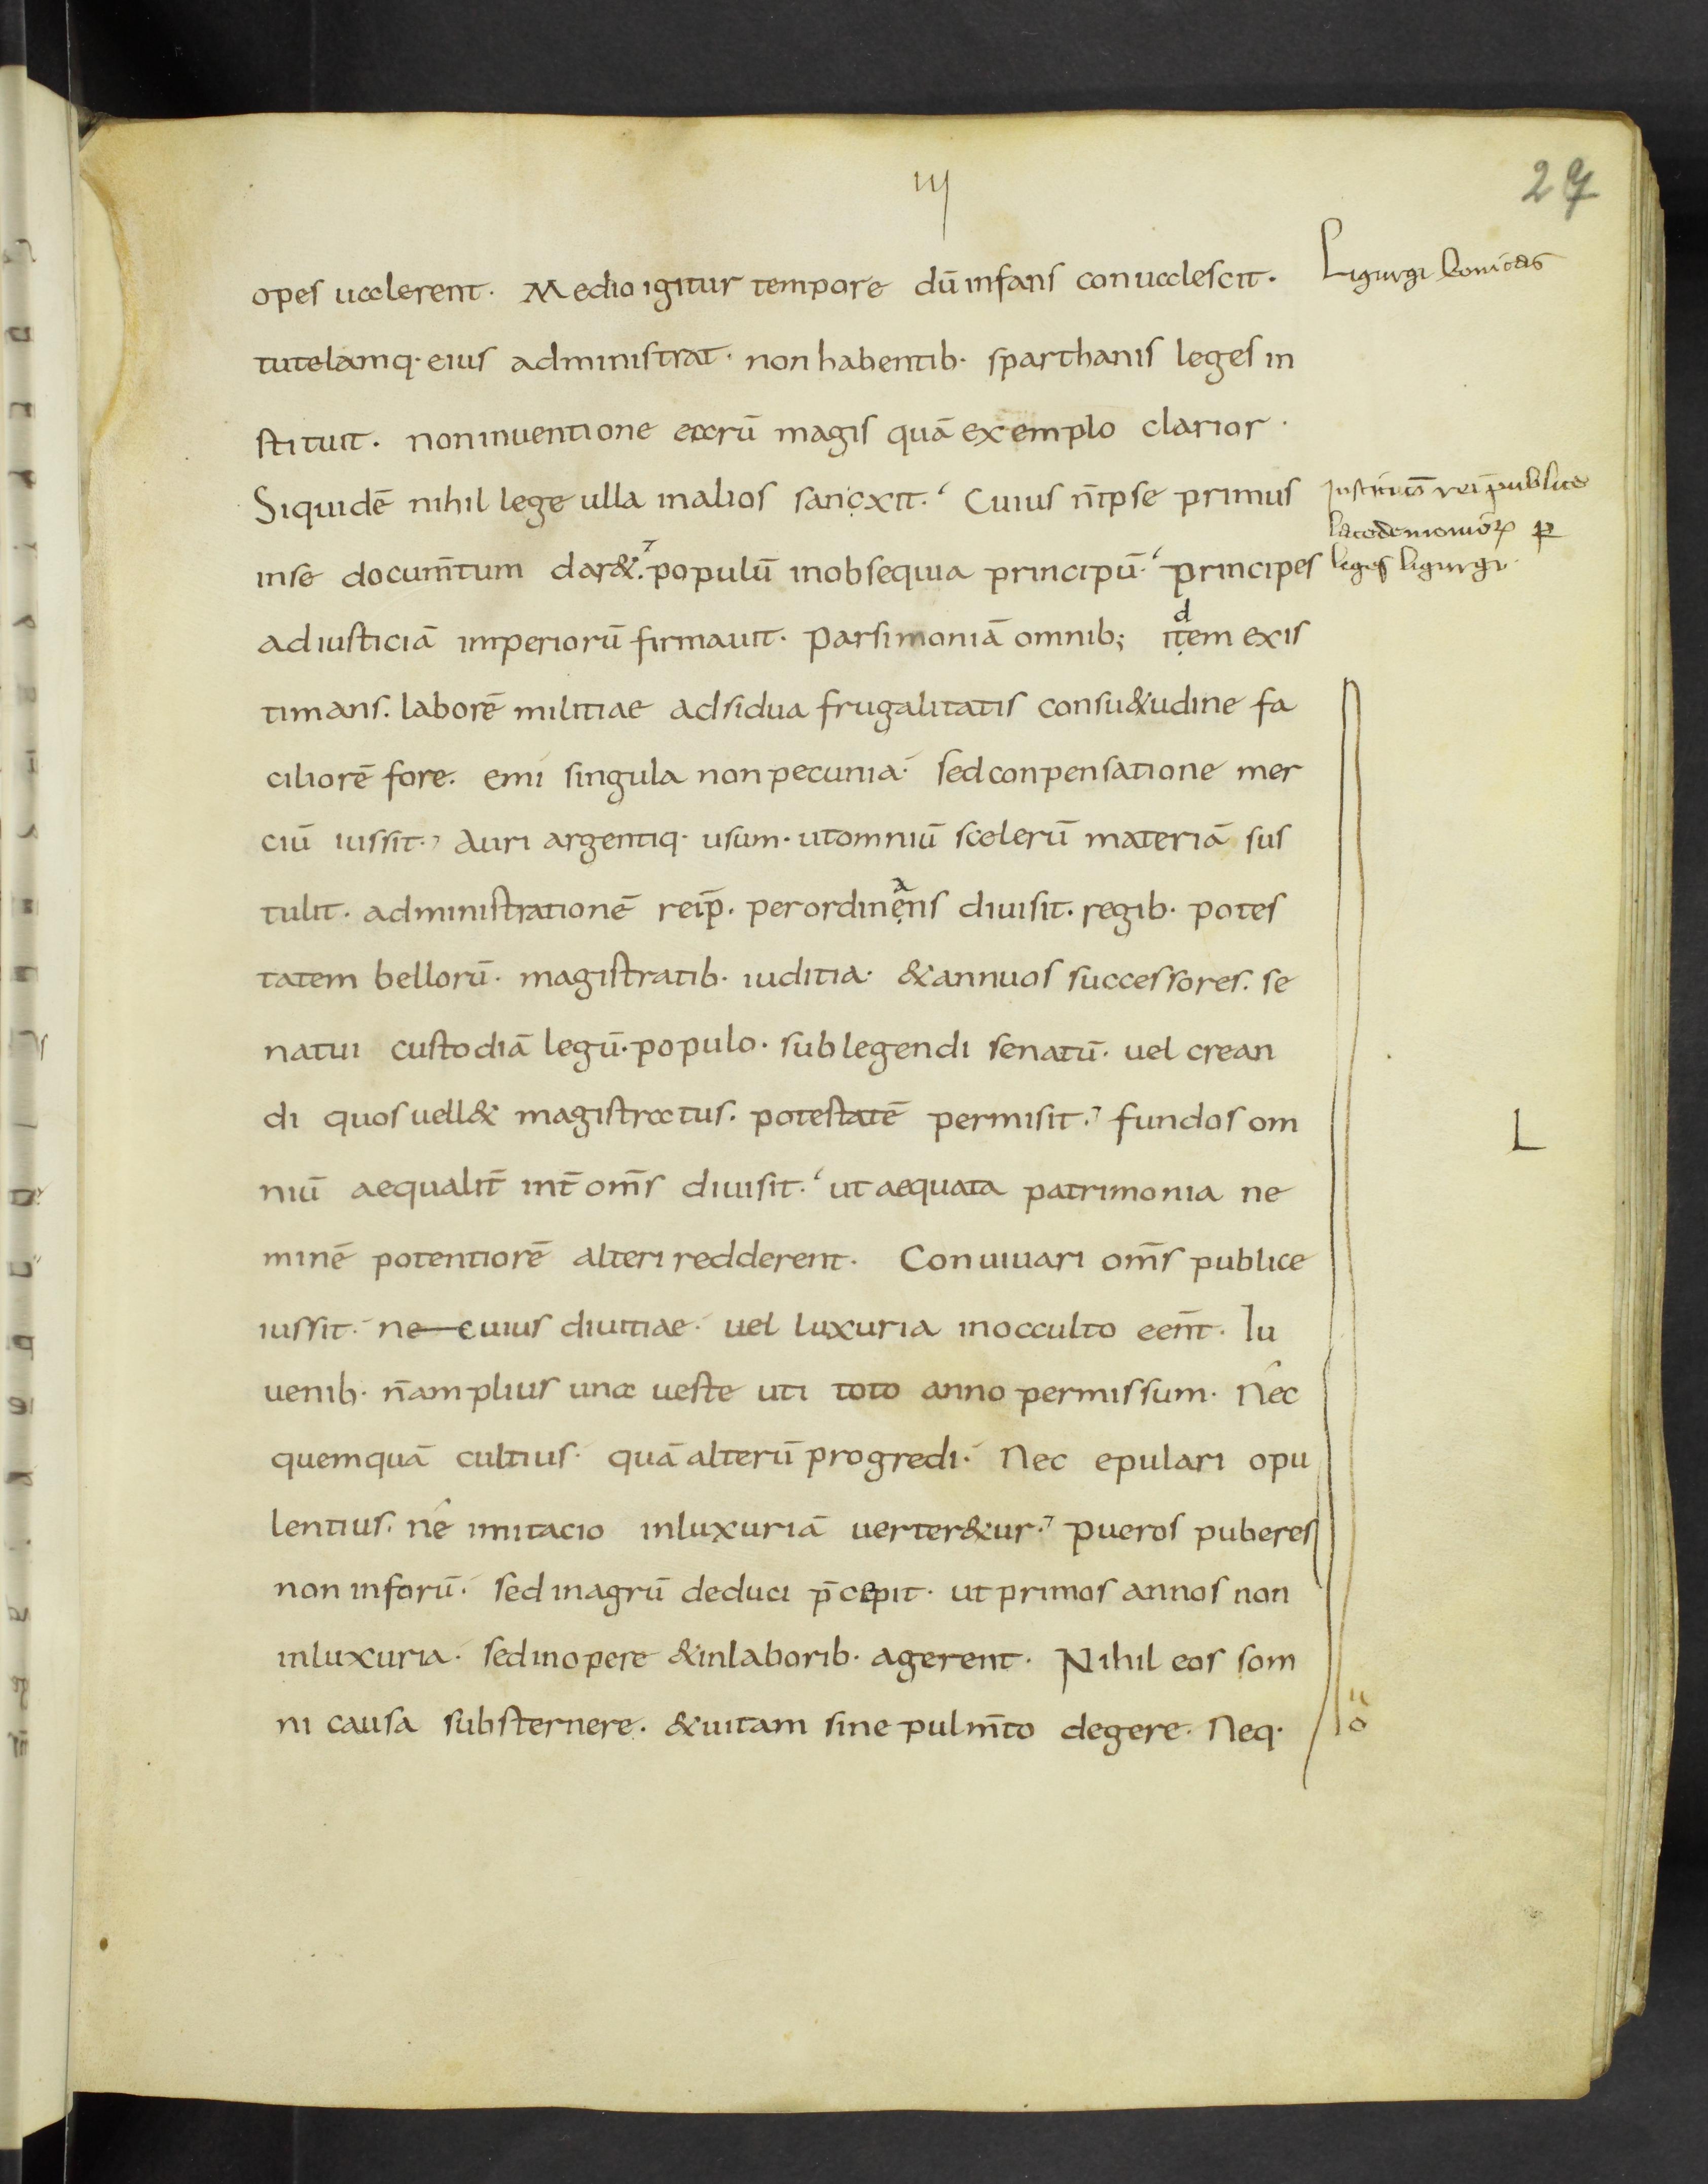 iij
27
opes ualerent. Medio igitur tempore dū infans conualescit.
Ligurgi bonitas
tutelamq· eius administrat. non habentib· sparthanis leges in
stituit. non inuentione earū magis quā exemplo clarior.
Siquidē nihil lege ulla in alios sancxit. Cuius n̄ ipse primus
Institutō rei publice
lacedemoniorꝝ ꝑ
leges ligurgi
in se docum̄tum dar&. populū in obsequia principū. principes
ad iusticiā imperiorū firmauit. parsimoniā omnib; itdem exis
timans. laborē militiae adsidua frugalitatis consu&udine fa
ciliorē fore. emi singula non pecunia. sed conpensatione mer
ciū iussit. Auri argentiq· usum. ut omniū scelerū materiā sus
tulit. administrationē reip̄. per ordineans diuisit. regib· potes
tatem bellorū. magistratib· iuditia. & annuos successores. se
natui custodiā legū. populo. sublegendi senatū. uel crean
di quos uell& magistratus. potestatē permisit. fundos om
L
niū aequalit̄ int̄ om̄s diuisit. ut aequata patrimonia ne
minē potentiorē alteri redderent. Conuiuari om̄s publice
iussit. ne cuius diuitiae. uel luxuria in occulto een̄t. Iu
uenib· n̄ amplius una ueste uti toto anno permissum. Nec
quemquā cultius. quā alterū progredi. Nec epulari opu
lentius. ne imitacio in luxuriā uerter&ur. pueros puberes
non in forū. sed in agrū deduci p̄cepit. ut primos annos non
in luxuria. sed in opere & in laborib· agerent. Nihil eos som
ni causa substernere. & uitam sine pulm̄to degere. Neq·